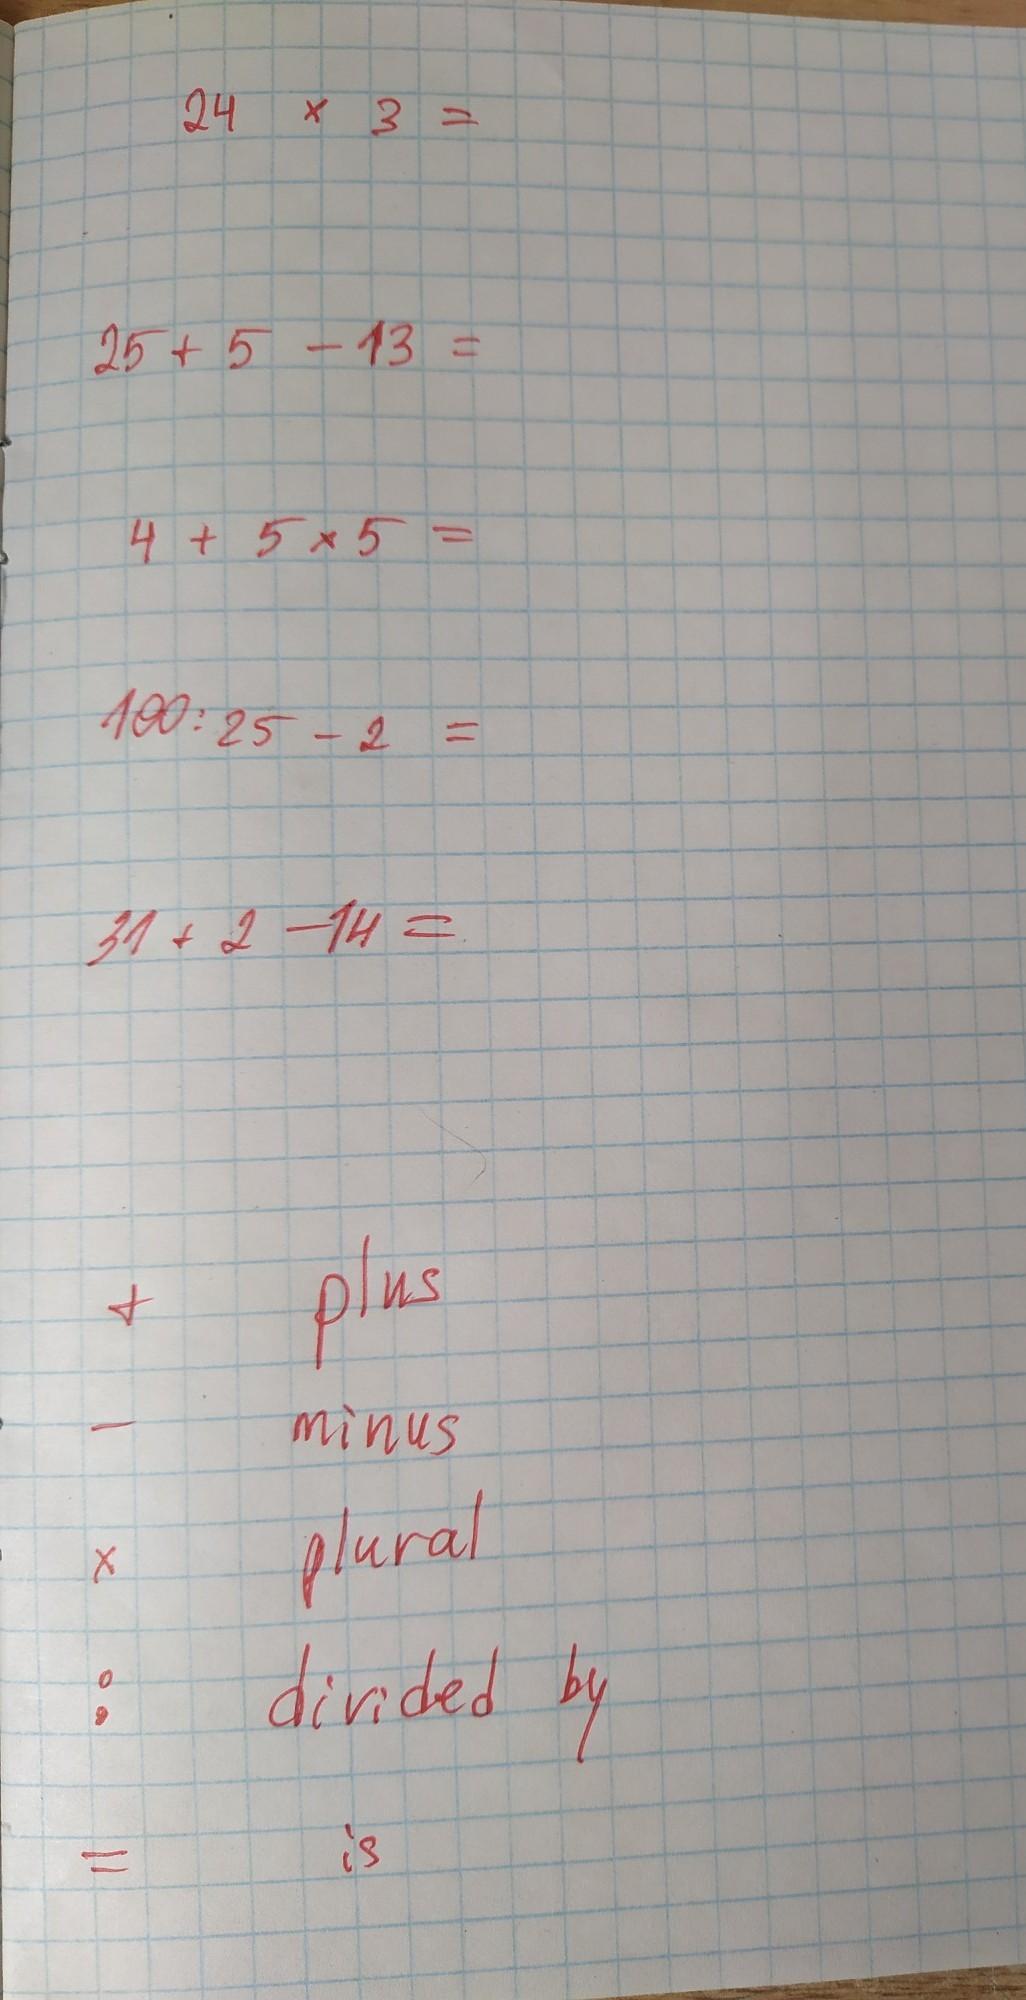 24 x 3 =
25 + 5 - 13 =
4 + 5 x 5 =
100 : 25 - 2 =
31 + 2 - 14 =
+ plus
- minus
x plural
: divided by
= is